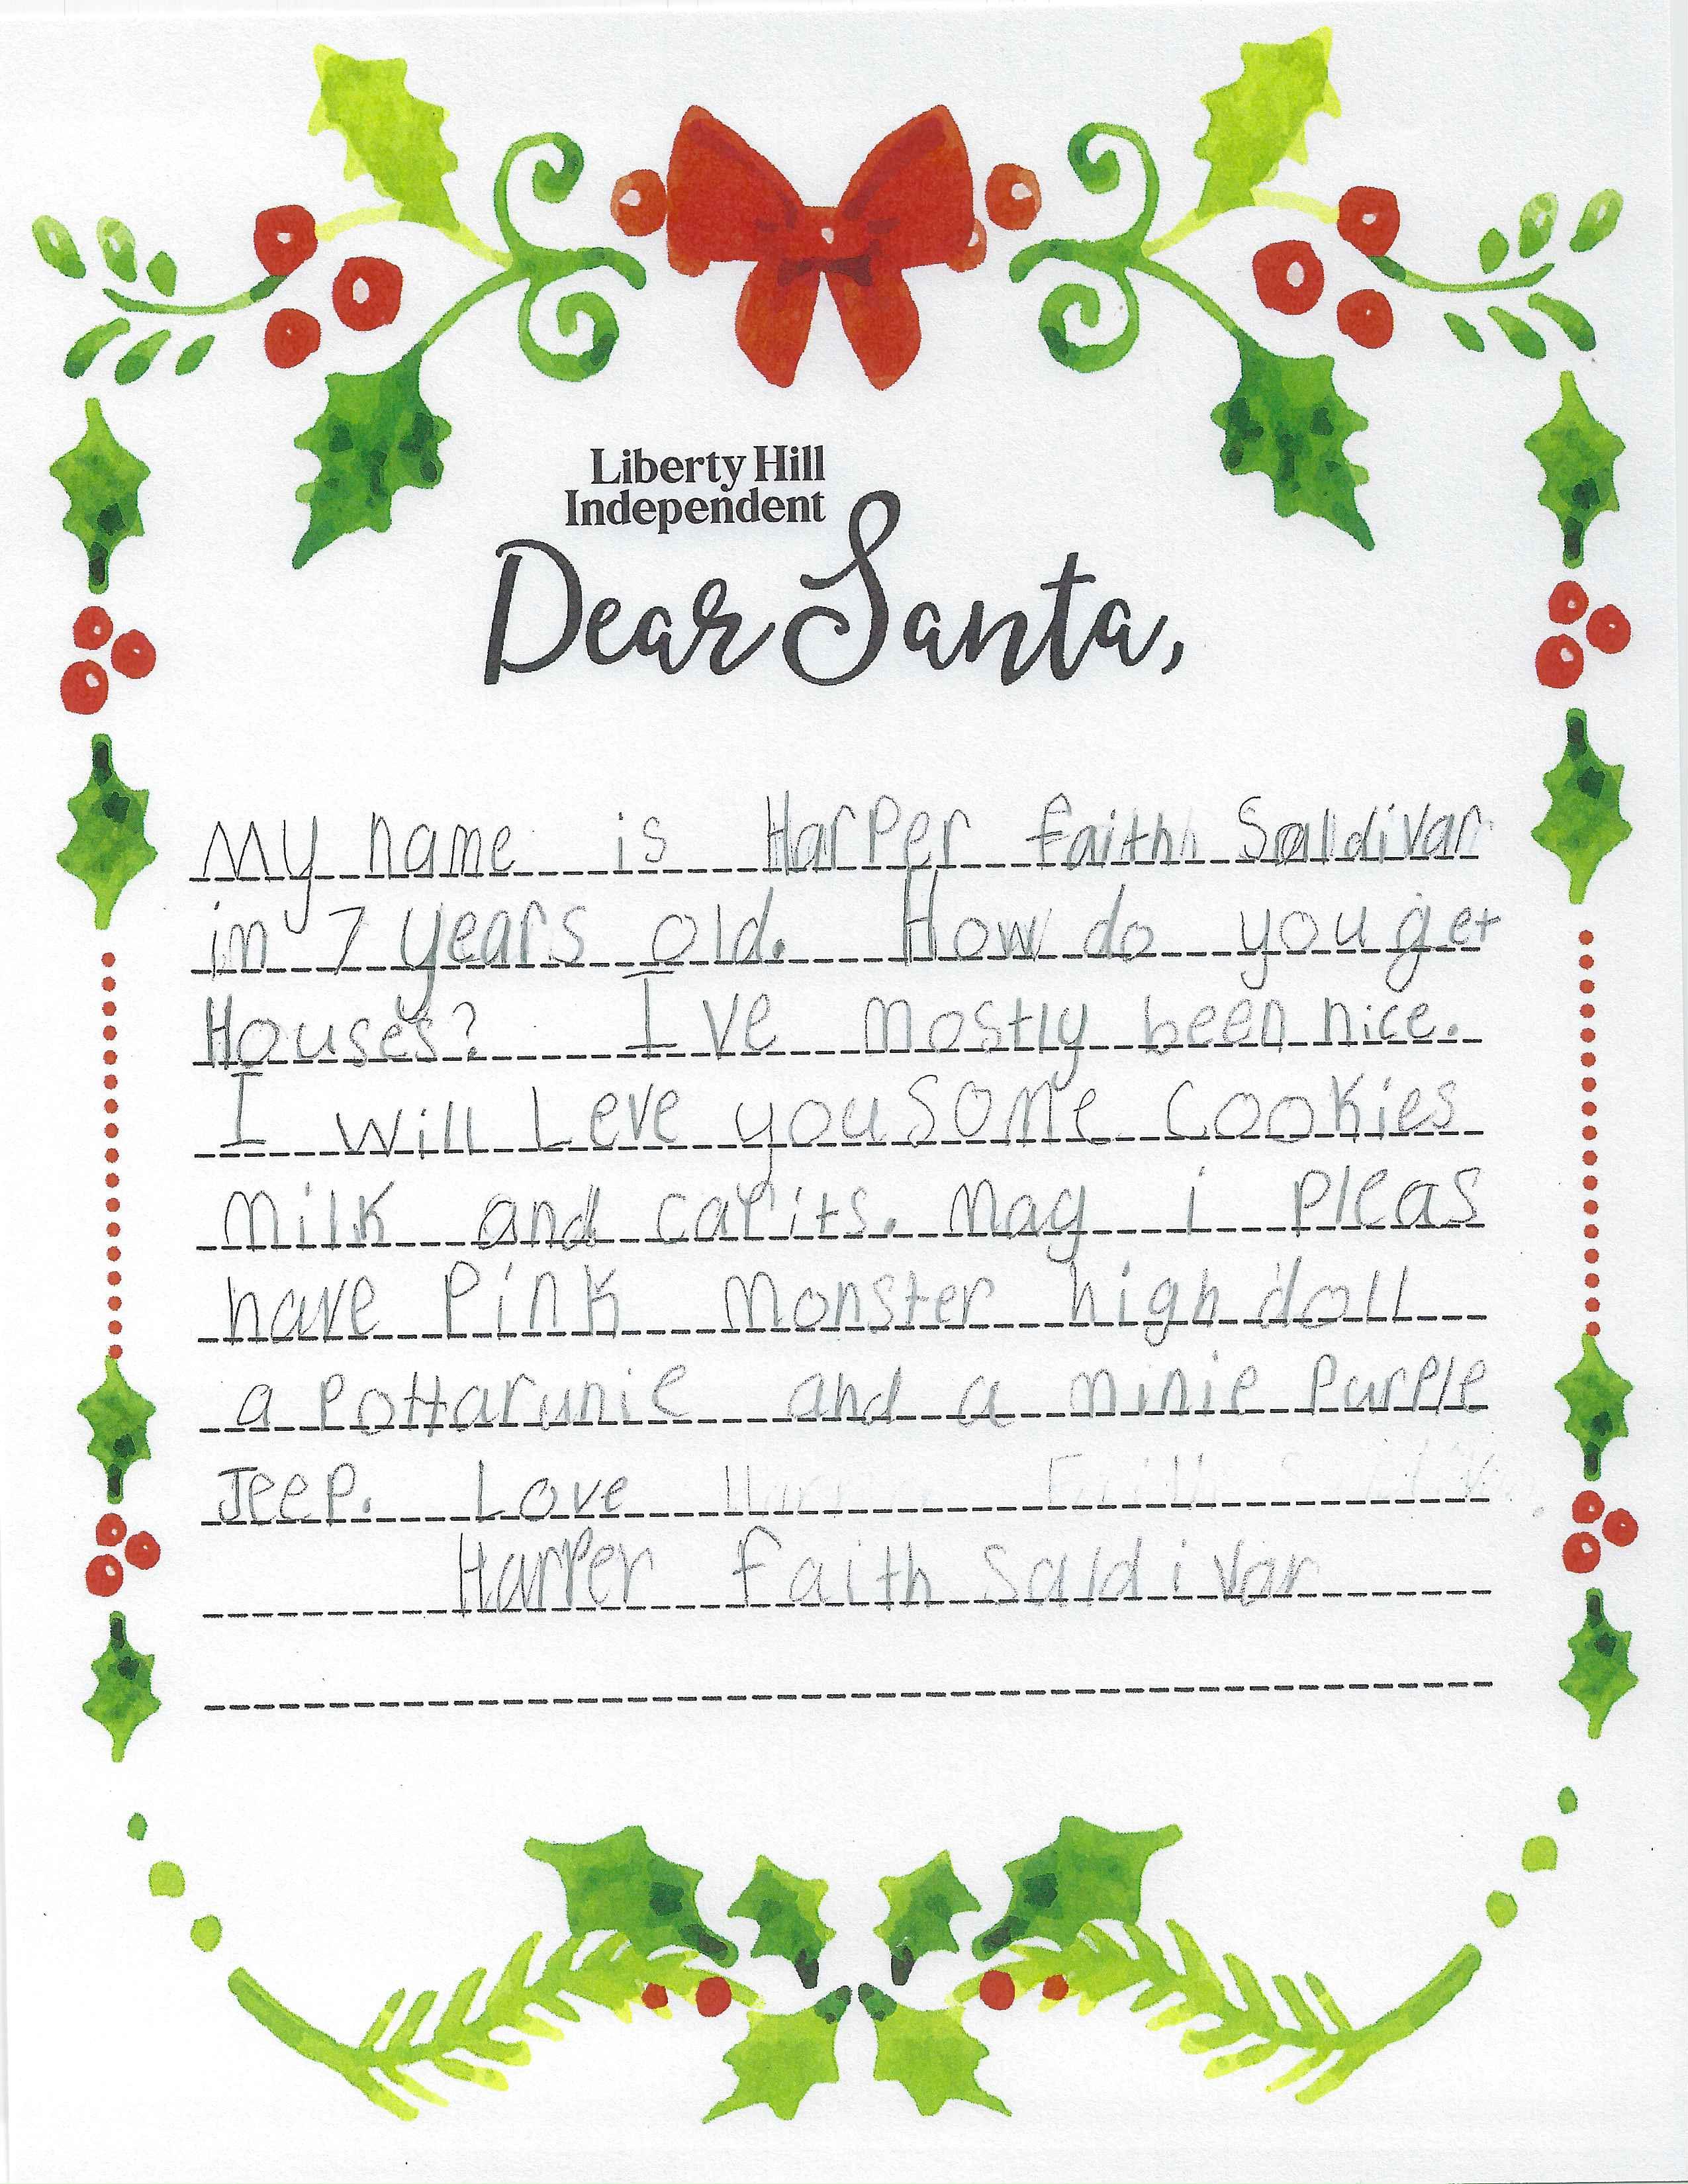 Liberty Hill
Independent
Dear Santa,
My name is Harper faith Saldivar
im 7 years old. How do you get
Houses? I ve mostly been nice.
I will Leve you some cookies
milk and carits. May i pleas
have Pink monster high doll
a Pottarunie and a minie Purple
Jeep. Love
Harper faith Saldivar